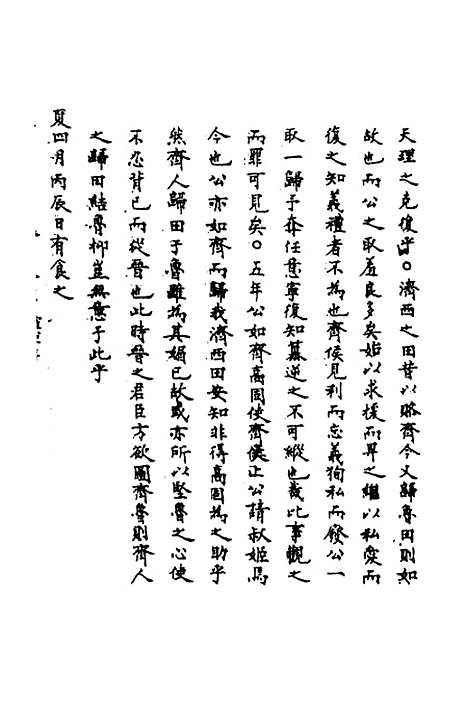 天理之克復乎○濟西之田昔以賂齊今又歸魯田則如
故也而公之取羞良多矣始以求援而畀之繼以私愛而
復之知義禮者不為也齊侯見利而忘義狥私而廢公一
取一歸予奪任意寧復知簒逆之不可縱也哉比事觀之
而罪可見矣○五年公如齊高固使齊侯止公請叔姬焉
今也公亦如齊而歸我濟西田安知非得高固為之助乎
然齊人歸田于魯雖為其婚已故或亦所以堅魯之心使
不忍背已而從晉也此時晉之君臣方欲圖齊魯則齊人
之歸田結魯抑豈無意于此乎
夏四月丙辰日有食之